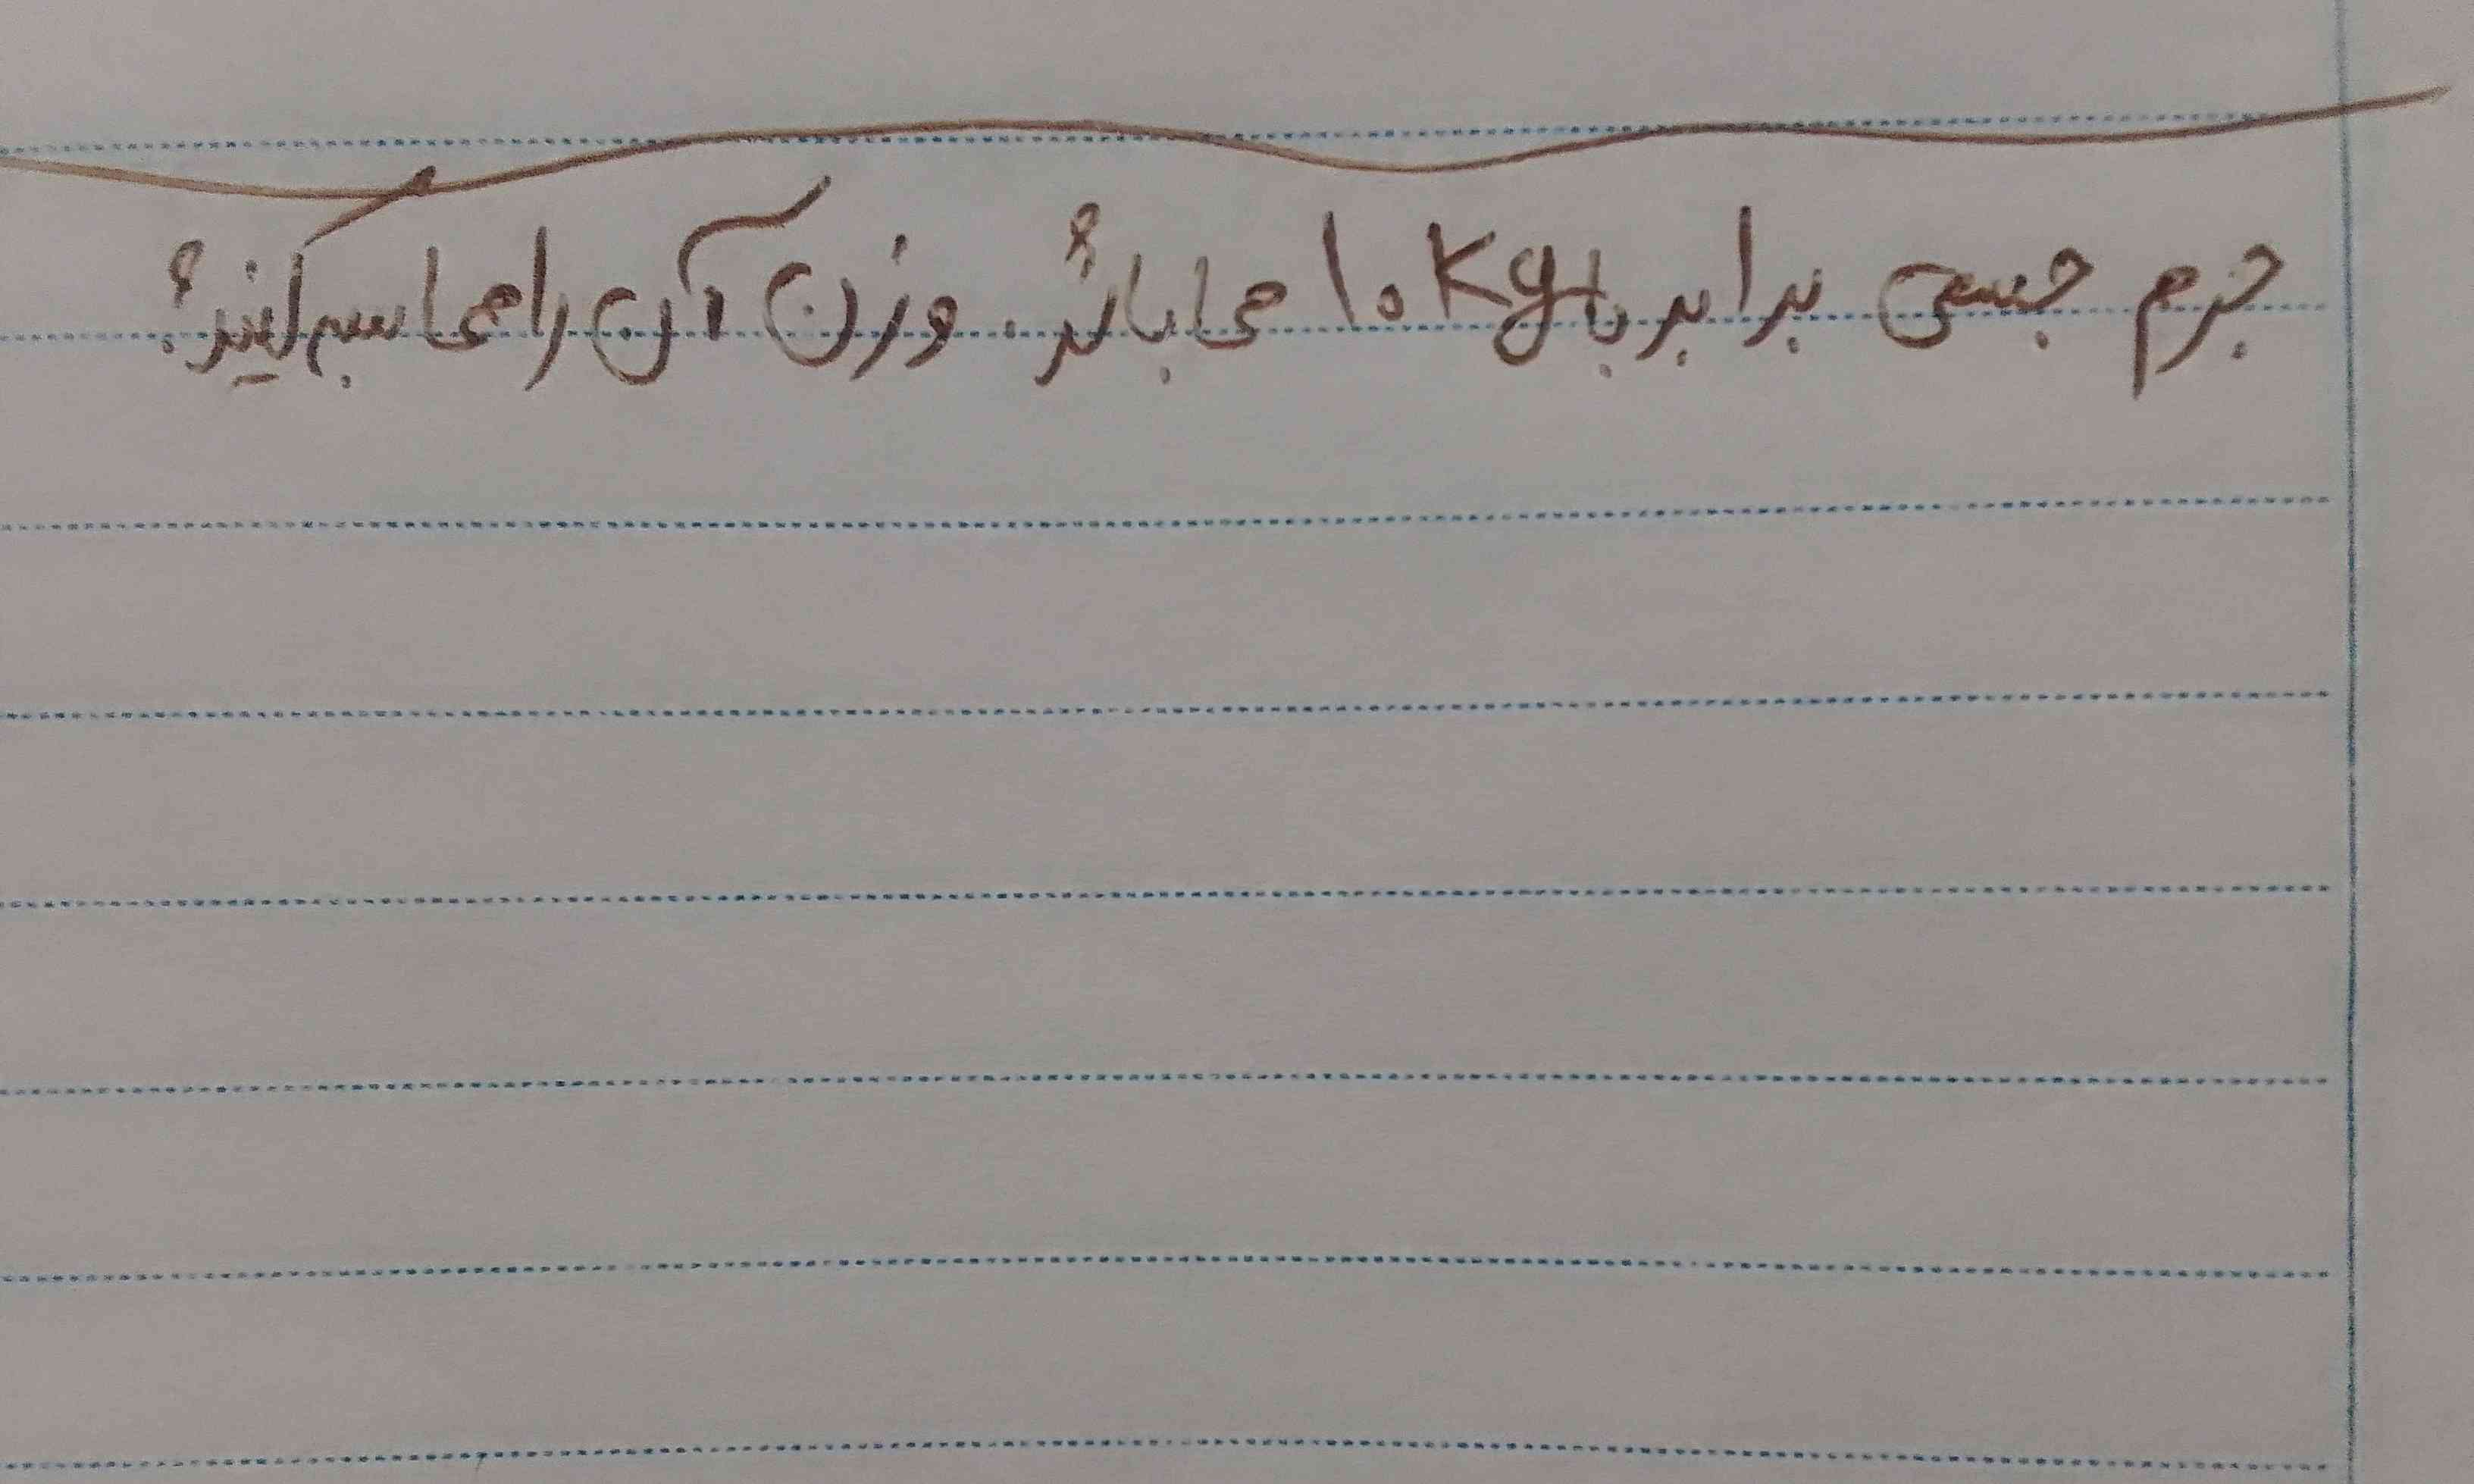 جرم جسمی برابر با 10 kg می باشد. وزن آن را محاسبه کنید؟